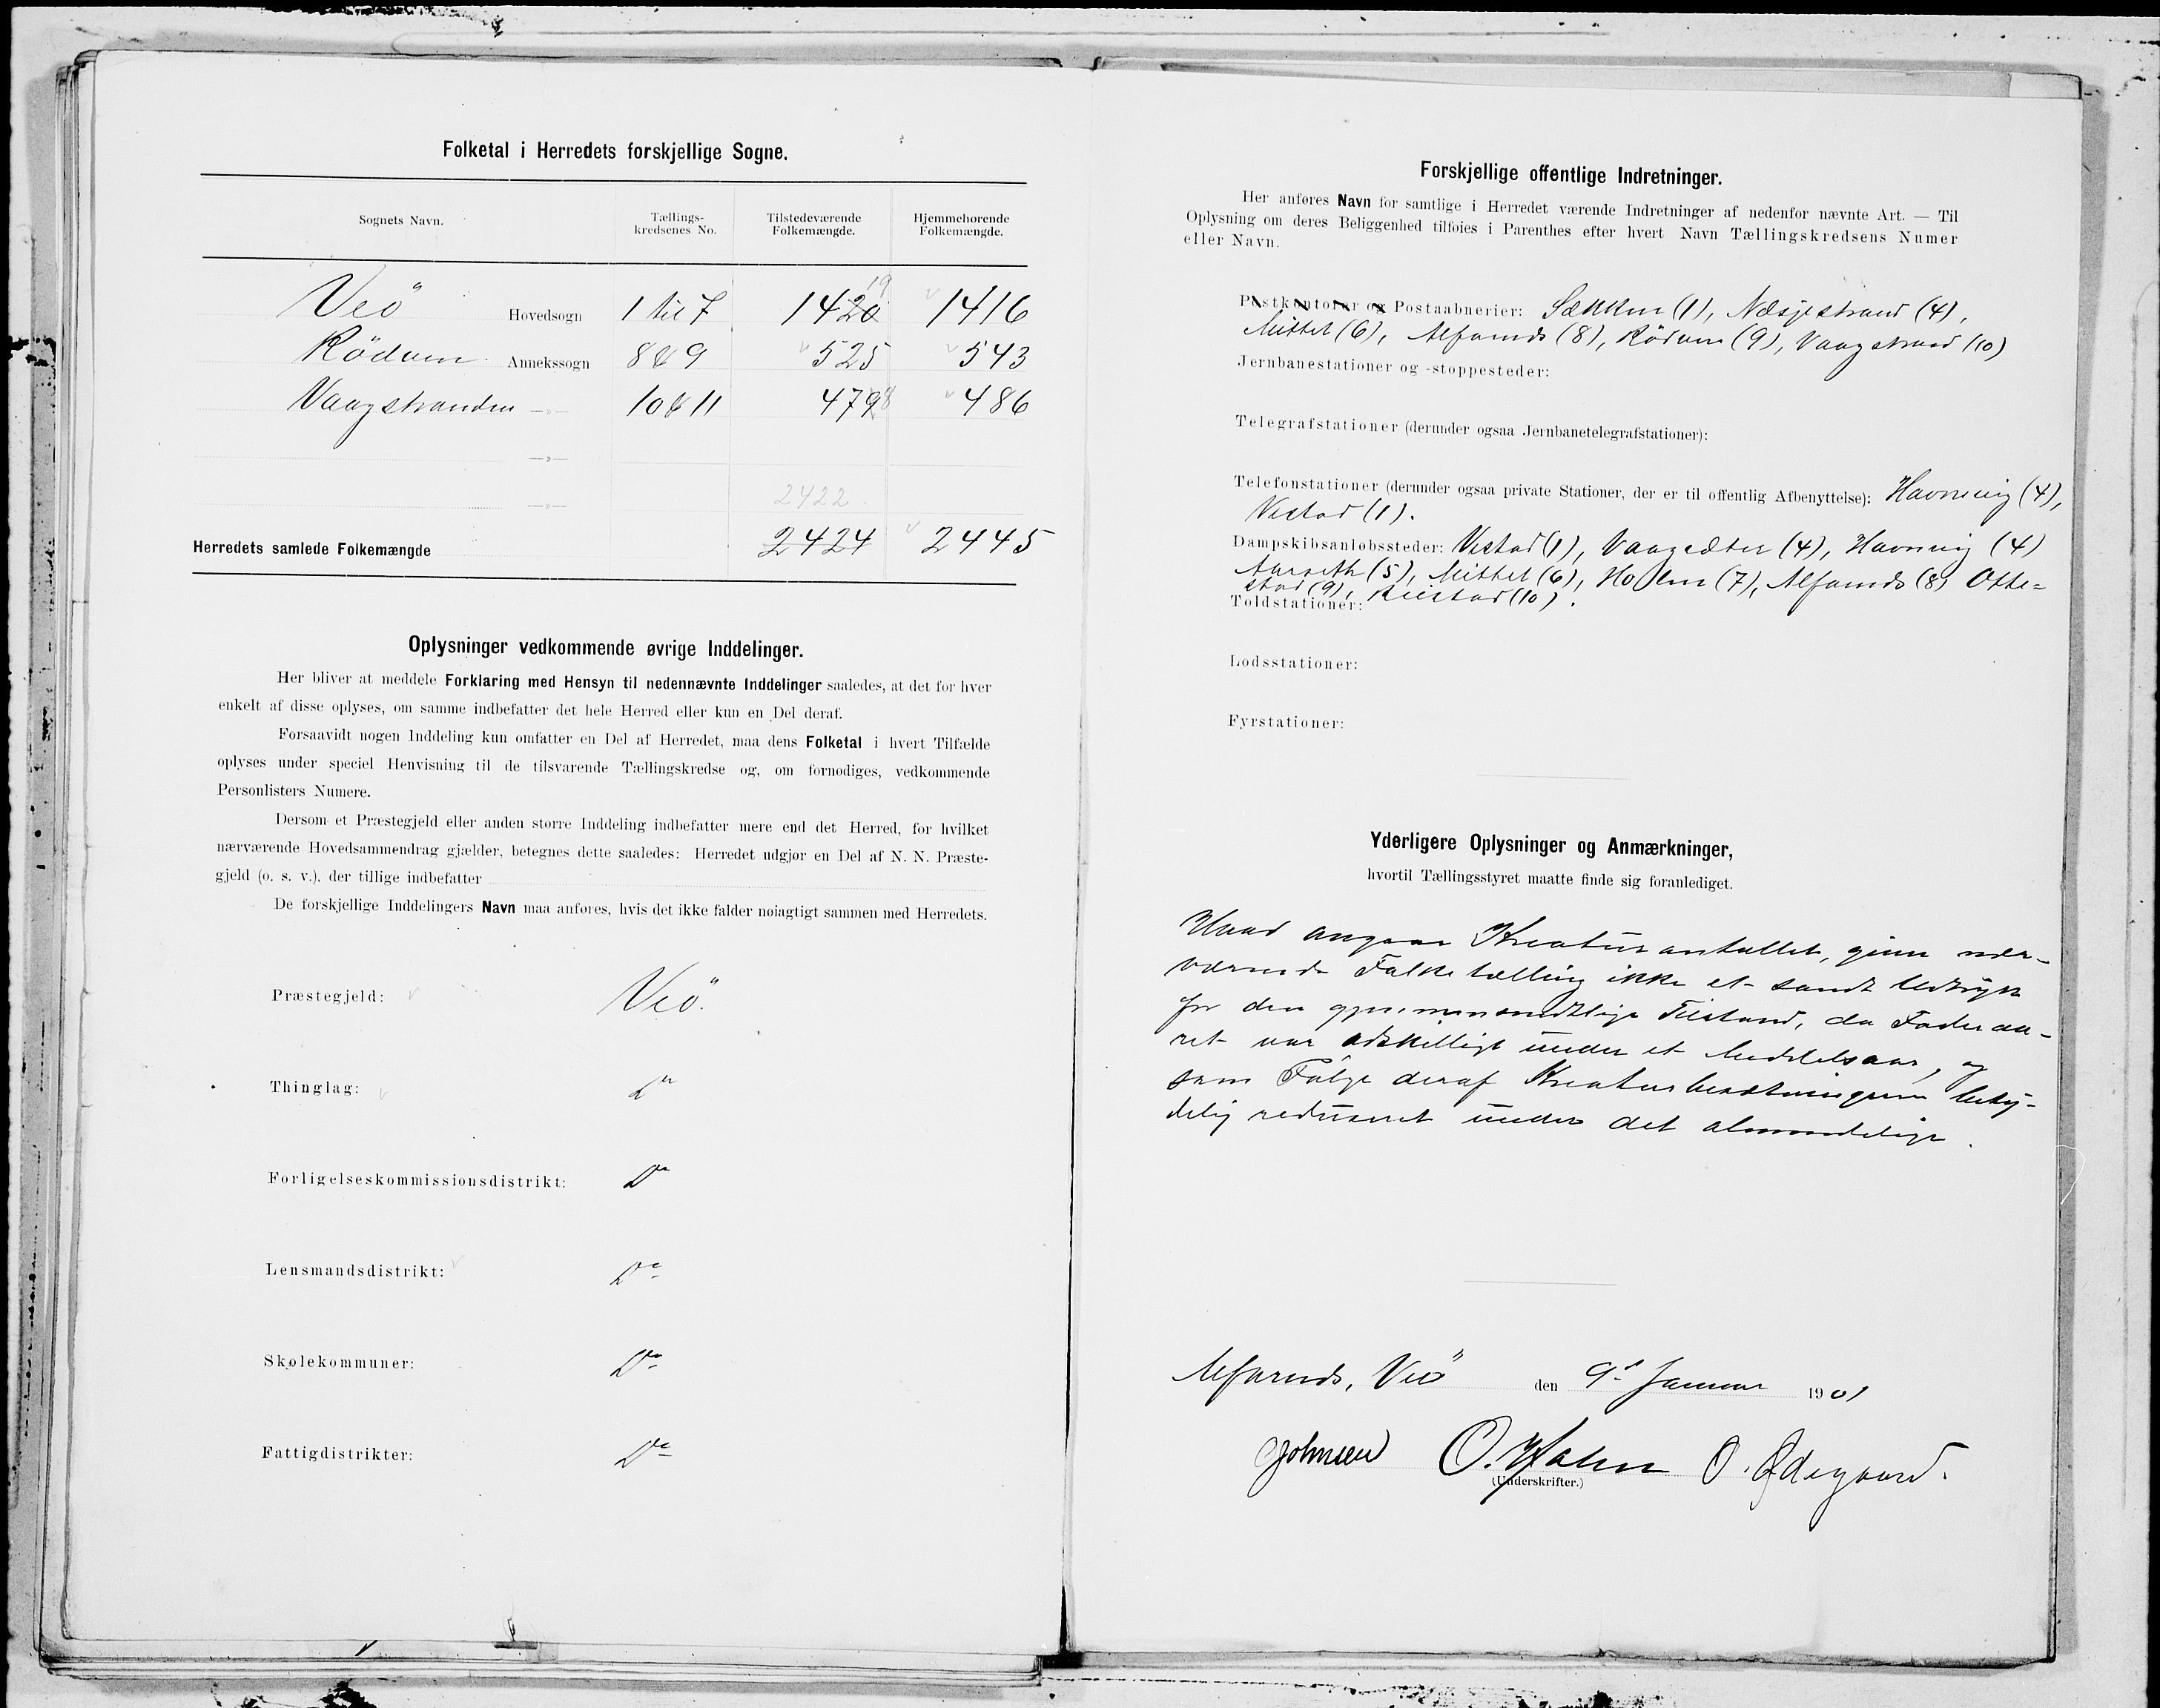 Folketal i Herredets forskjellige Sogne.
Sognets Navn.
Tællings-
kredsenes No.
Tilstedeværende
Folkemængde.
Hjemmehørende
Folkemængde.
Veö Hovedsogn 1 til 7 1420 19 1416
Rödven Annekssogn 8 & 9 525 543
Vaagstranden —»— 10 & 11 479 8 486
—»—
2422
—»—
Herredets samlede Folkemængde 2424 2445
Oplysninger vedkommende øvrige Inddelinger.
Her bliver at meddele Forklaring med Hensyn til nedennævnte Inddelinger saaledes, at det for hver
enkelt af disse oplyses, om samme indbefatter det hele Herred eller kun en Del deraf.
Forsaavidt nogen Inddeling kun omfatter en Del af Herredet, maa dens Folketal i hvert Tilfælde
oplyses under speciel Henvisning til de tilsvarende Tællingskredse og, om fornødiges, vedkommende
Personlisters Numere.
Dersom et Præstegjeld eller anden større Inddeling indbefatter mere end det Herred, for hvilket
nærværende Hovedsammendrag gjælder, betegnes dette saaledes: Herredet udgjør en Del af N. N. Præste-
gjeld (o. s. v.), der tillige indbefatter
De forskjellige Inddelingers Navn maa anføres, hvis det ikke falder nøiagtigt sammen med Herredets.
Præstegjeld: Veö.
Thinglag: Do
Forligelseskommissionsdistrikt: Do
Lensmandsdistrikt: Do
Skolekommuner: Do
Fattigdistrikter: Do
Forskjellige offentlige Indretninger.
Her anføres Navn for samtlige i Herredet værende Indretninger af nedenfor nævnte Art. — Til
Oplysning om deres Beliggenhed tilføies i Parenthes efter hvert Navn Tællingskredsens Numer
eller Navn.
Postkontorer og Postaabnerier: Sækken (1), Næsjestrand (4),
Mittet (6), Alfarnes (8), Rödven (9), Vaagstrand (10)
Jernbanestationer og -stoppesteder:
Telegrafstationer (derunder ogsaa Jernbanetelegrafstationer):
Telefonstationer (derunder ogsaa private Stationer, der er til offentlig Afbenyttelse): Havnevig (4),
Vestad (1).
Dampskibsanløbssteder: Vestad (1), Vaagsæter (4), Havnevig (4)
Aarseth (5), Mittet (6), Holm (7), Alfarnes (8) Otte=
stad (9), (10).
Toldstationer:
Lodsstationer:
Fyrstationer:
Yderligere Oplysninger og Anmærkninger,
hvortil Tællingsstyret maatte finde sig foranlediget.
Hvad angaar Kreaturantallet, giver nær-
værende Folketælling ikke et sandt Udtryk
for den gjennemsnitlige Tilstand, da Foderaa-
ret var adskilligt under et Middelsaar, og
som Følge deraf Kreaturbesætningerne bety-
delig reduseret under det almindelige.
Alfarnes, Veö den 9de Januar 1901
Johnsen O. Holm O. Ødegaard.
(Underskrifter.)